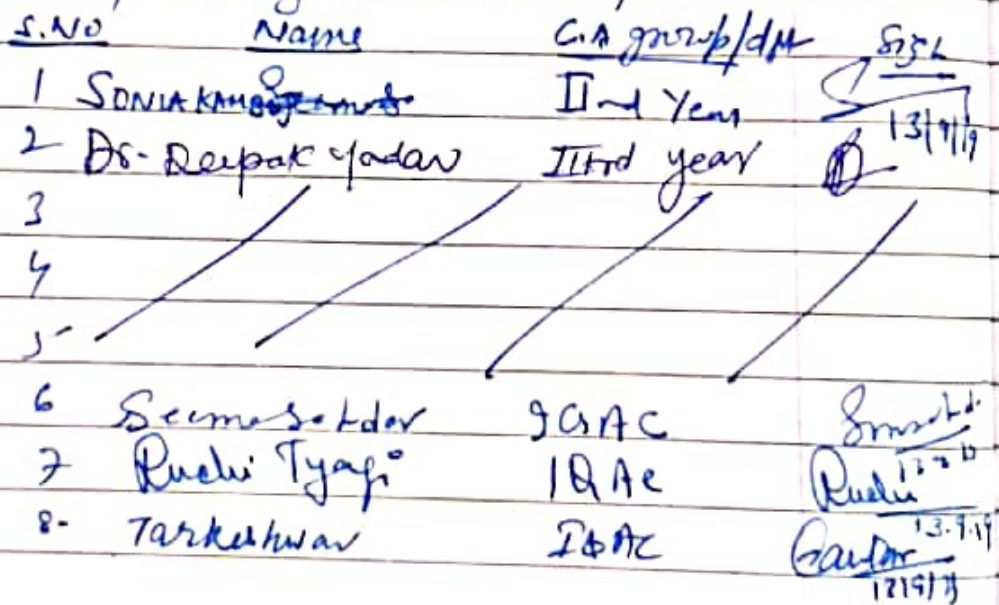 S.NO Name C.A group/dptt Sign
1 SONIA KAMBOJ IInd Year 13/9/19
2 Dr. Deepak Yadav IIIrd year
3
4
5
6 Seema Sahdev IQAC
7 Ruchi Tyagi IQAC Ruchi 13.9.19
8- Tarkeshwar IQAC